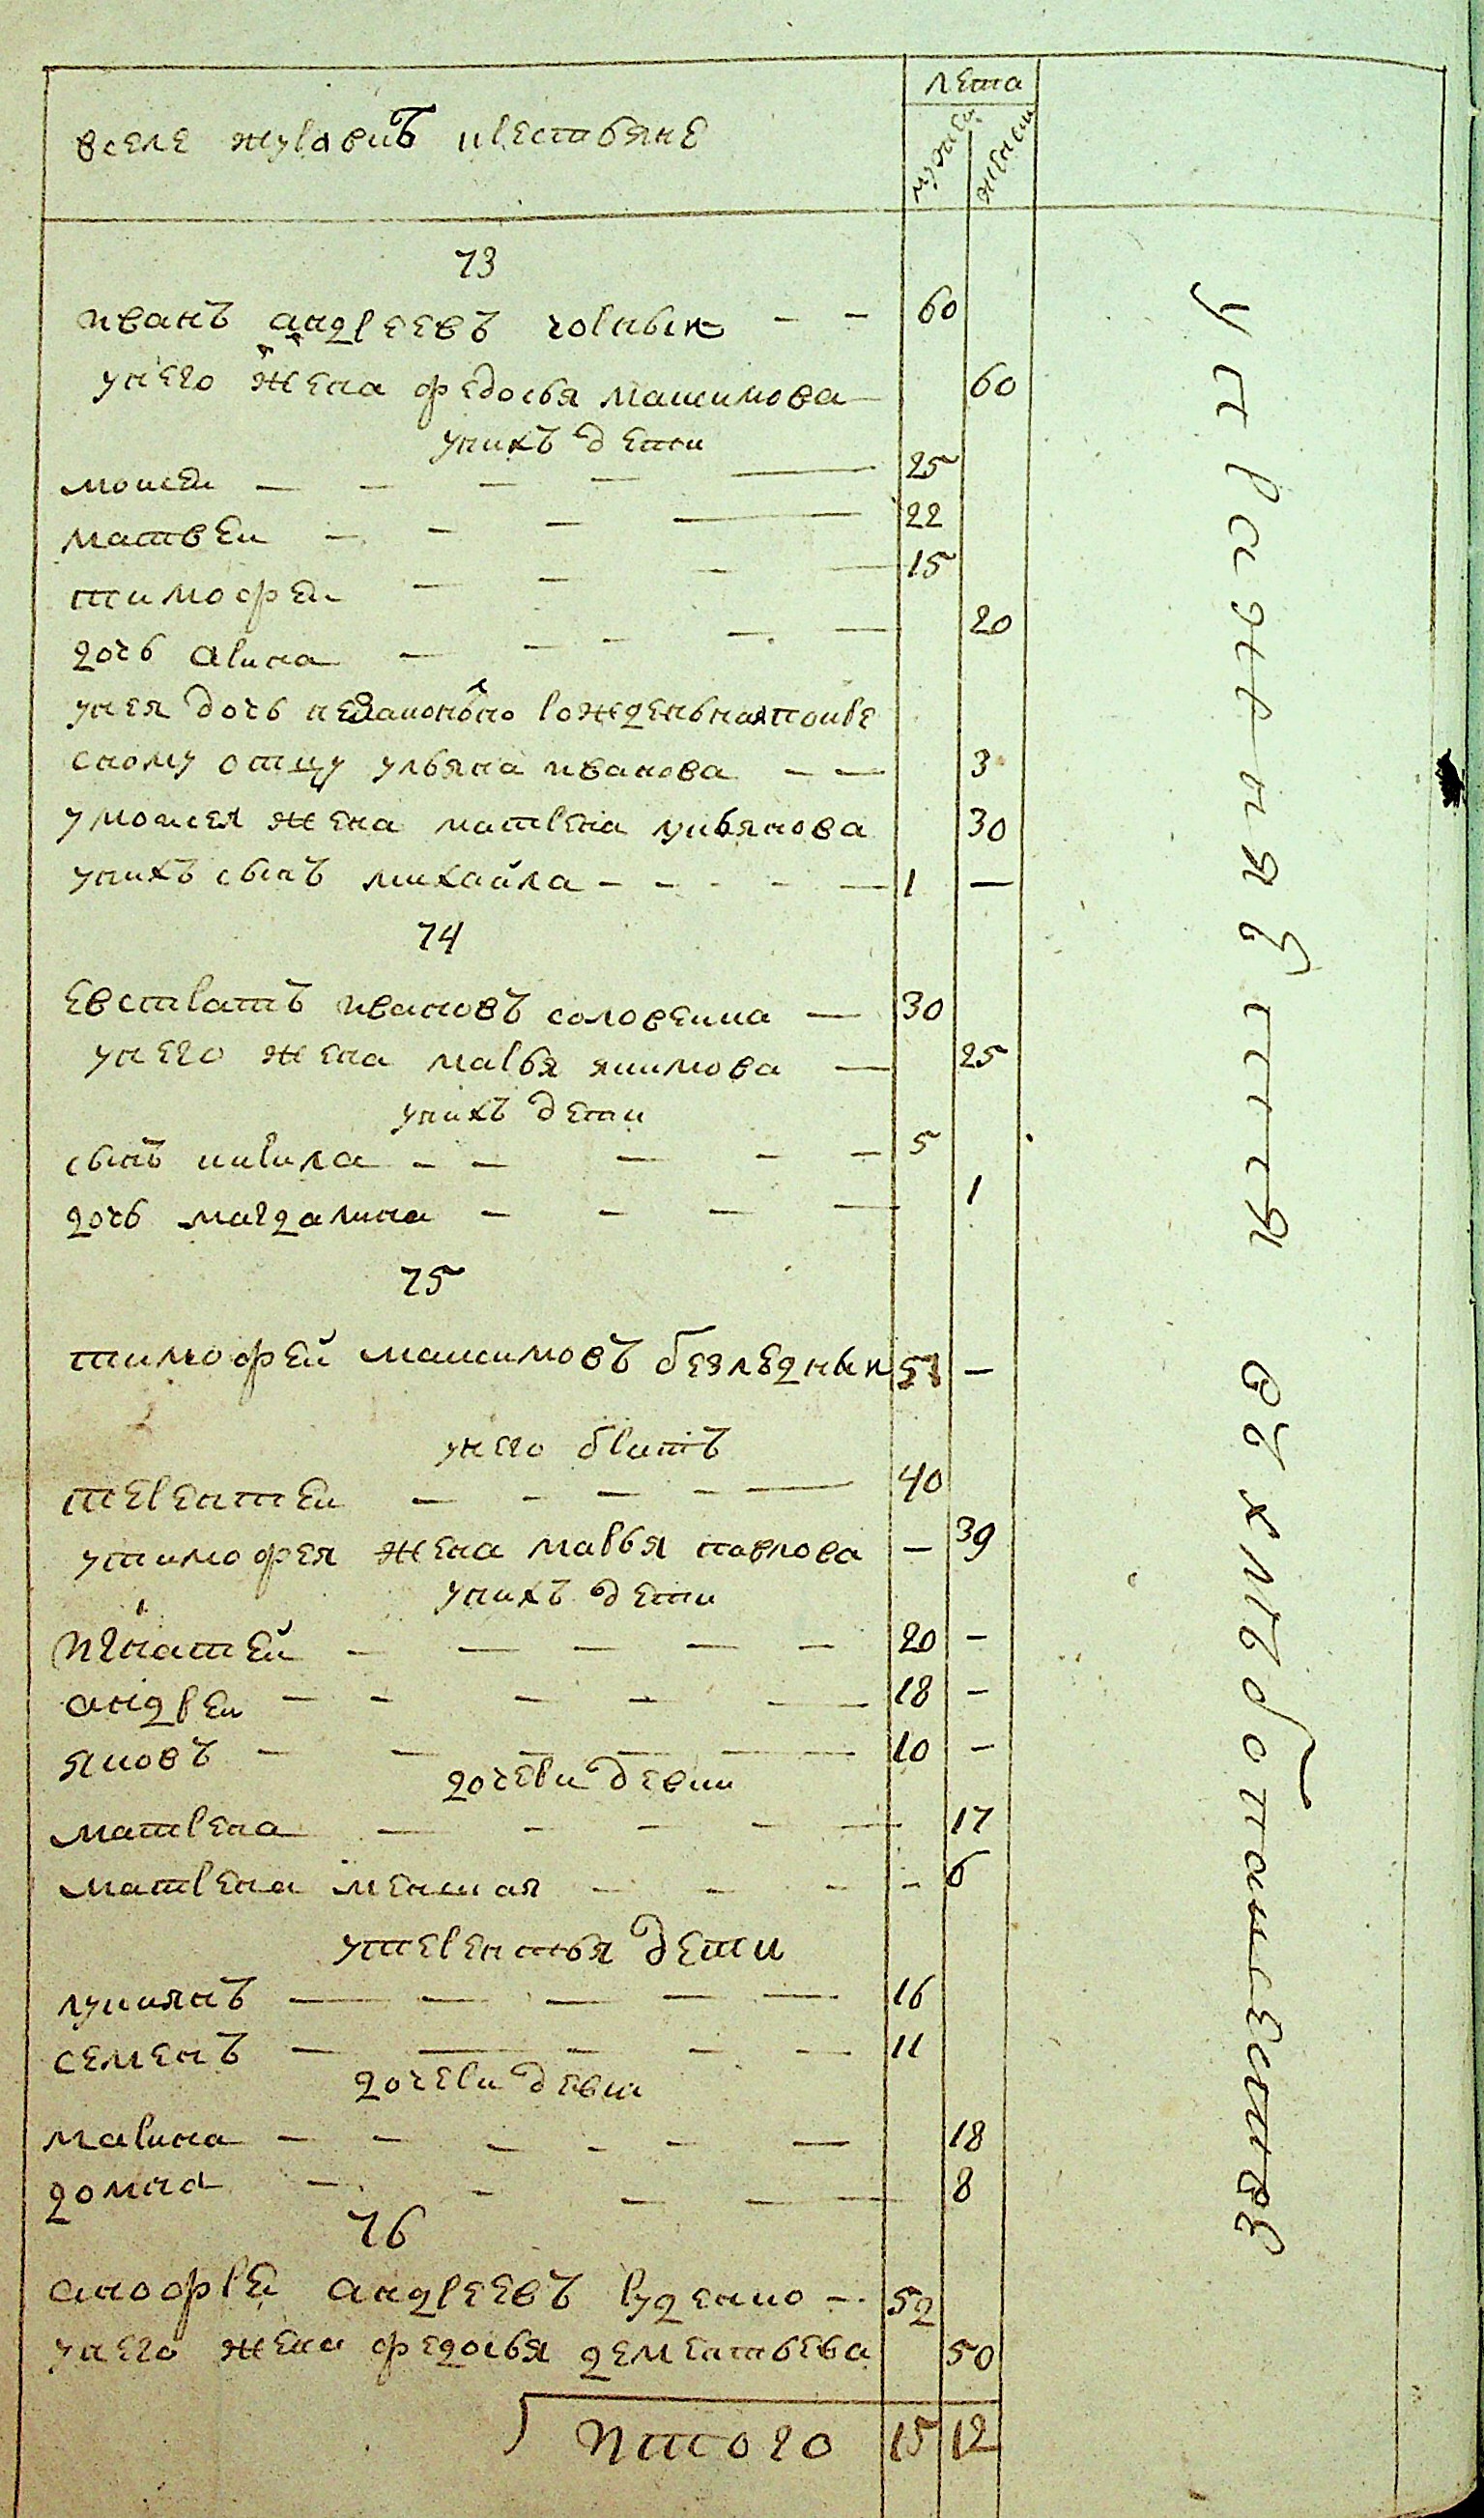 вселе журавкѣ крестьяне
лета
мужеск
женск
73
иванъ андреевъ чорнык 60
унего жена федосья максимова 60
унихъ дети
моисеи 25
матвеи 22
тимофеи 15
дочь арина 20
унея дочь незаконно рожденьная покре
сному отцу ульяна иванова 3
умоисея жена матрена лукьянова 30
унихъ сынъ михайла 1 —
74
евстратъ ивановъ соловеика 30
унего жена марья якимова 25
унихъ дети
сынъ кирила 5
дочь магдалина 1
75
тимофей максимовъ безледнык 51 —
унего братъ
терентеи 40
утимофея жена марья павлова — 39
унихъ дети
игнатей 20 —
андреи 18 —
яковъ 10 —
дочери девки
матрена 17
матрена меншая 6
утерентья дети
лукиянъ 16
семенъ 11
дочери девки
марина 18
домна 8
76
онофрей андреевъ руденко 52
унего жена федосья дементьева 50
итого 15 12